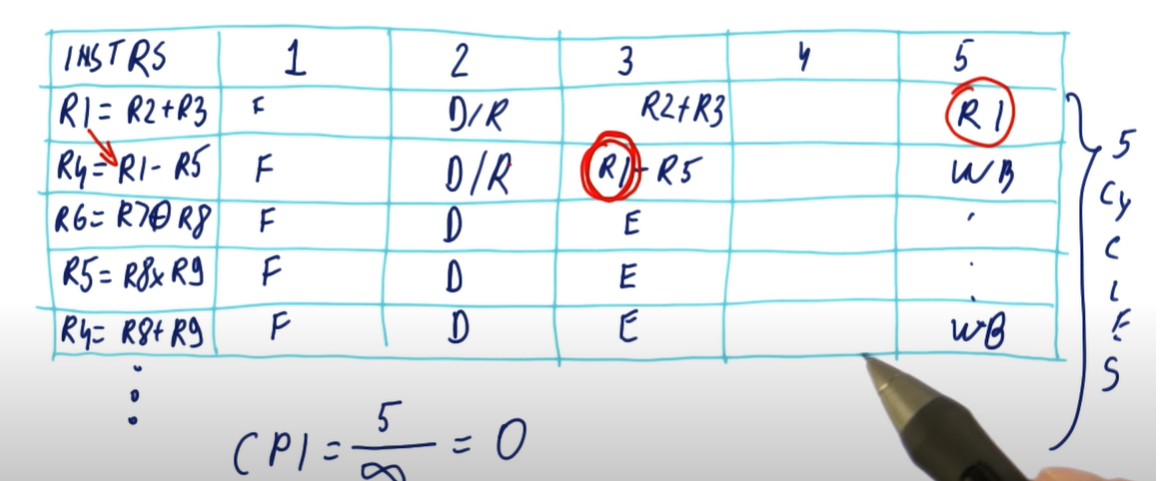 INSTRS 1 2 3 4 5
R1 = R2+R3 F D/R R2+R3 R1
R4 = R1 - R5 F D/R R1 - R5 WB
R6 = R7⊕R8 F D E
R5 = R8xR9 F D E
R4 = R8+R9 F D E WB
5 CYCLES
CPI = 5/∞ = 0